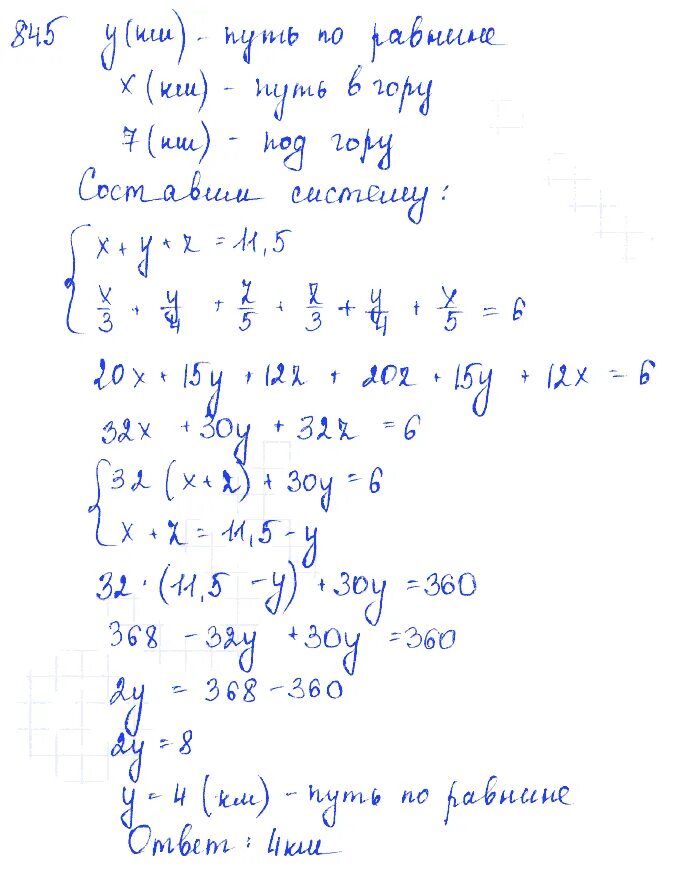 845 y(км) - путь по равнине
x (км) - путь в гору
7 (км) - под гору
Составим систему:
x + y + z = 11,5
x/3 + y/4 + z/5 + z/3 + y/4 + x/5 = 6
20x + 15y + 12z + 20z + 15y + 12x = 6
32x + 30y + 32z = 6
32 (x + z) + 30y = 6
x + z = 11,5 - y
32 · (11,5 - y) + 30y = 360
368 - 32y + 30y = 360
2y = 368 - 360
2y = 8
y = 4 (км) - путь по равнине
Ответ: 4км